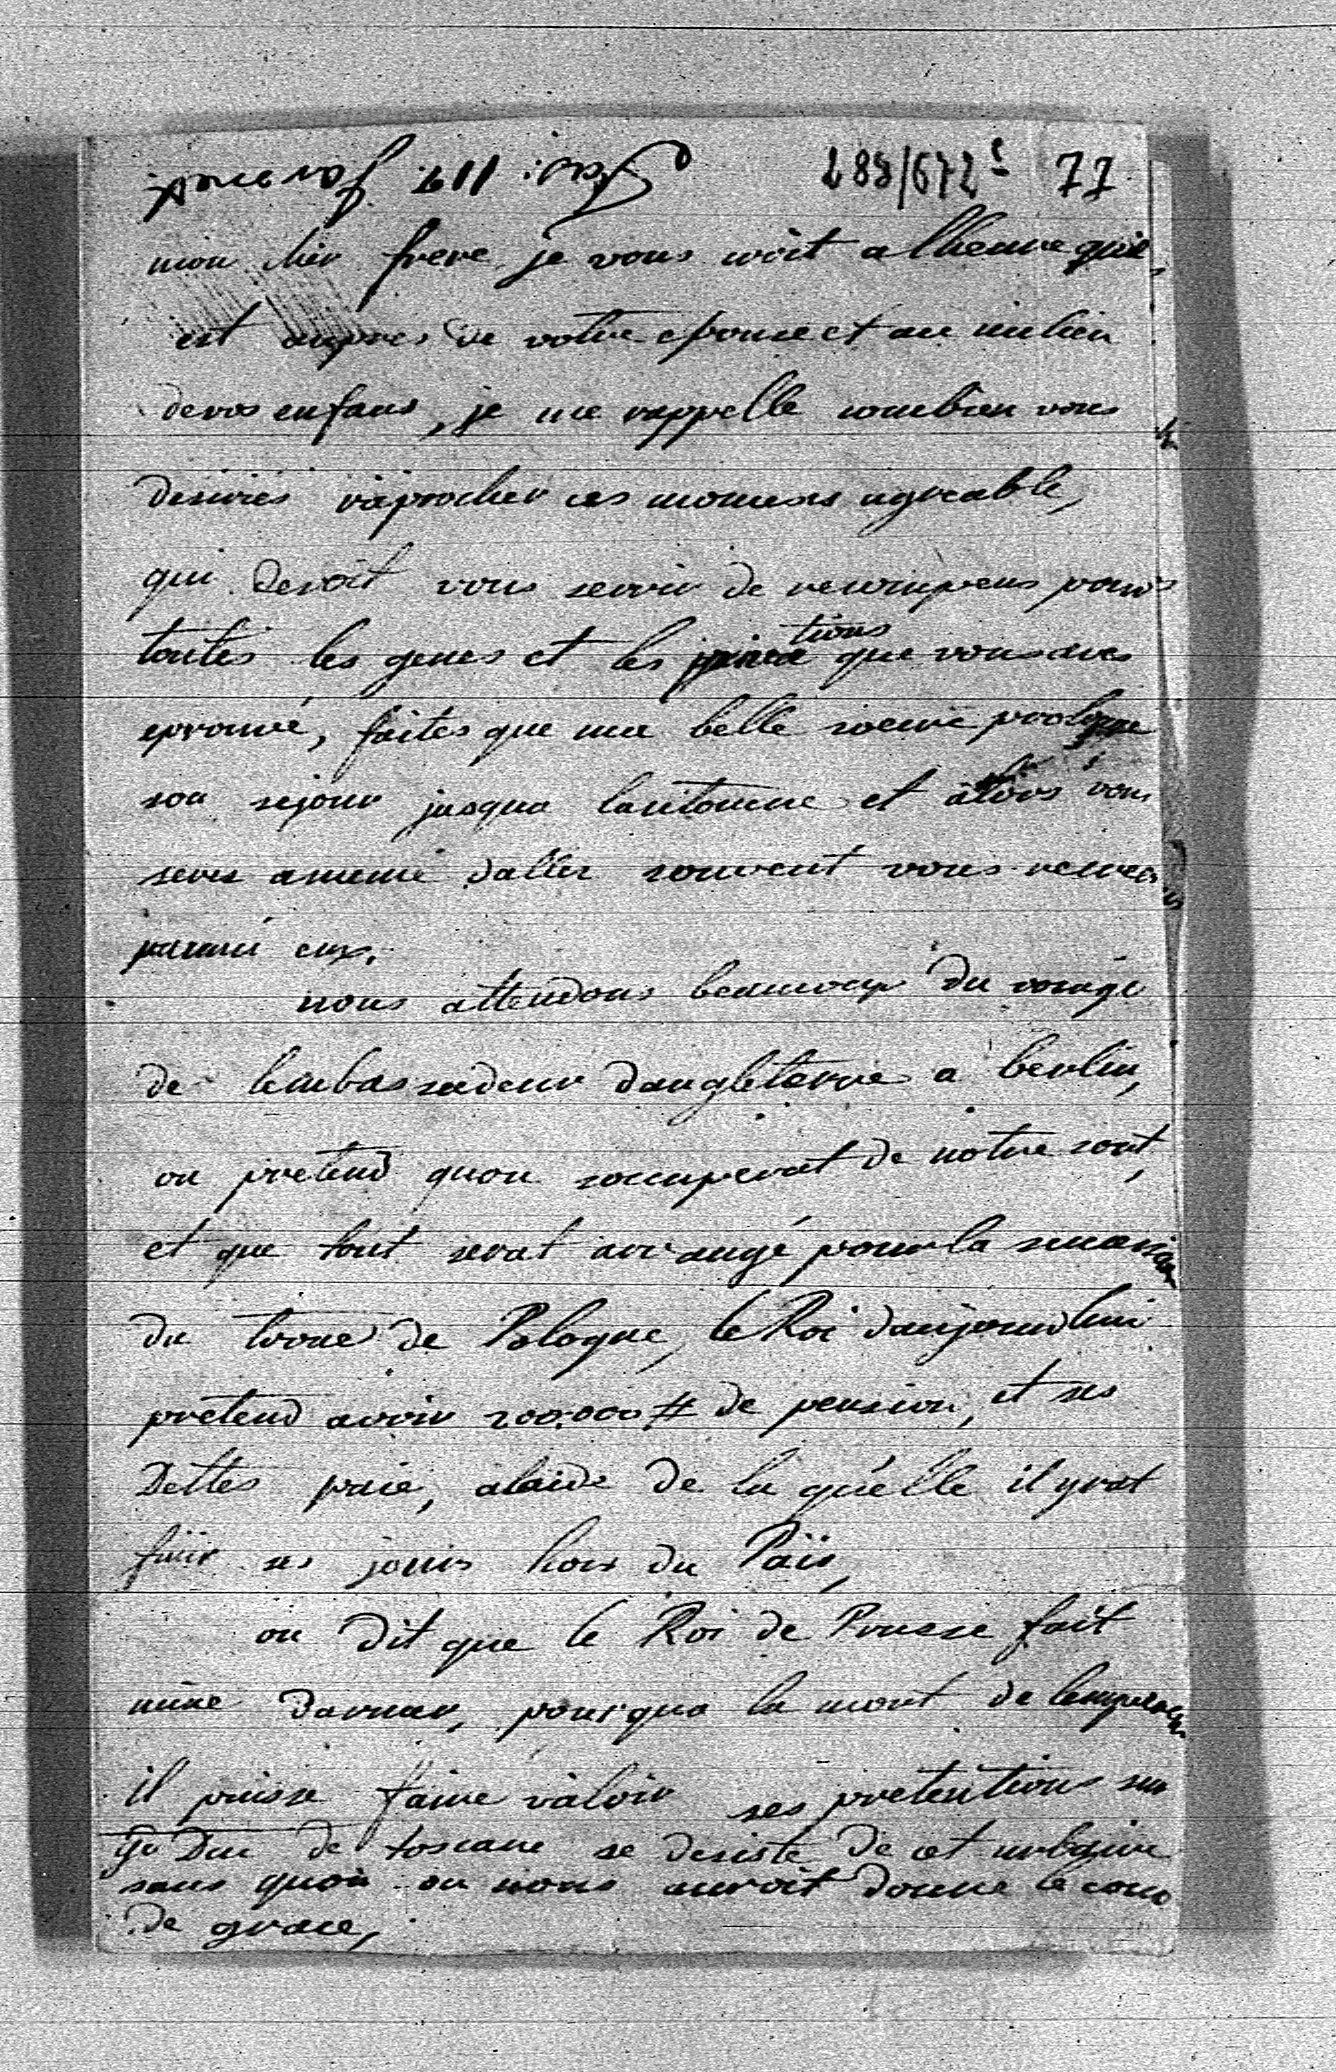 288/672 77
mon cher frere je vous croit a lheure quil
est aupres de votre epouse et au milieu
de vos enfans, je me rappelle combien vous
desiriés raprocher ces momens agreable,
qui devoit vous servir de recompens pour
toutes les genes et les que vous aves
eprouvé, faites que ma belle soeure prolonge
son sejour jusqua lautomne et alors vous
seres amemé daller souvent vous
parmi eux,
nous attendons beaucoup du voiage
de lembassadeur dangleterre a berlin,
on pretend quon soccuperat de notre sort,
et que tout serat arrangé pour la
du trone de Pologne, le Roi daujourdhui
pretend avoir 200.000 # de pension, et ses
Dettes paié, alaide de la quélle il yrat
finir ses jours hors du Païs,
on dit que le Roi de Prusse fait
mine darmer, pour qua la mort de lempereur
il puisse faire valoir ses pretentions sur
Gr Duc de toscane se desiste de cet
sans quoi on nous auroit donne le coup
de grace,